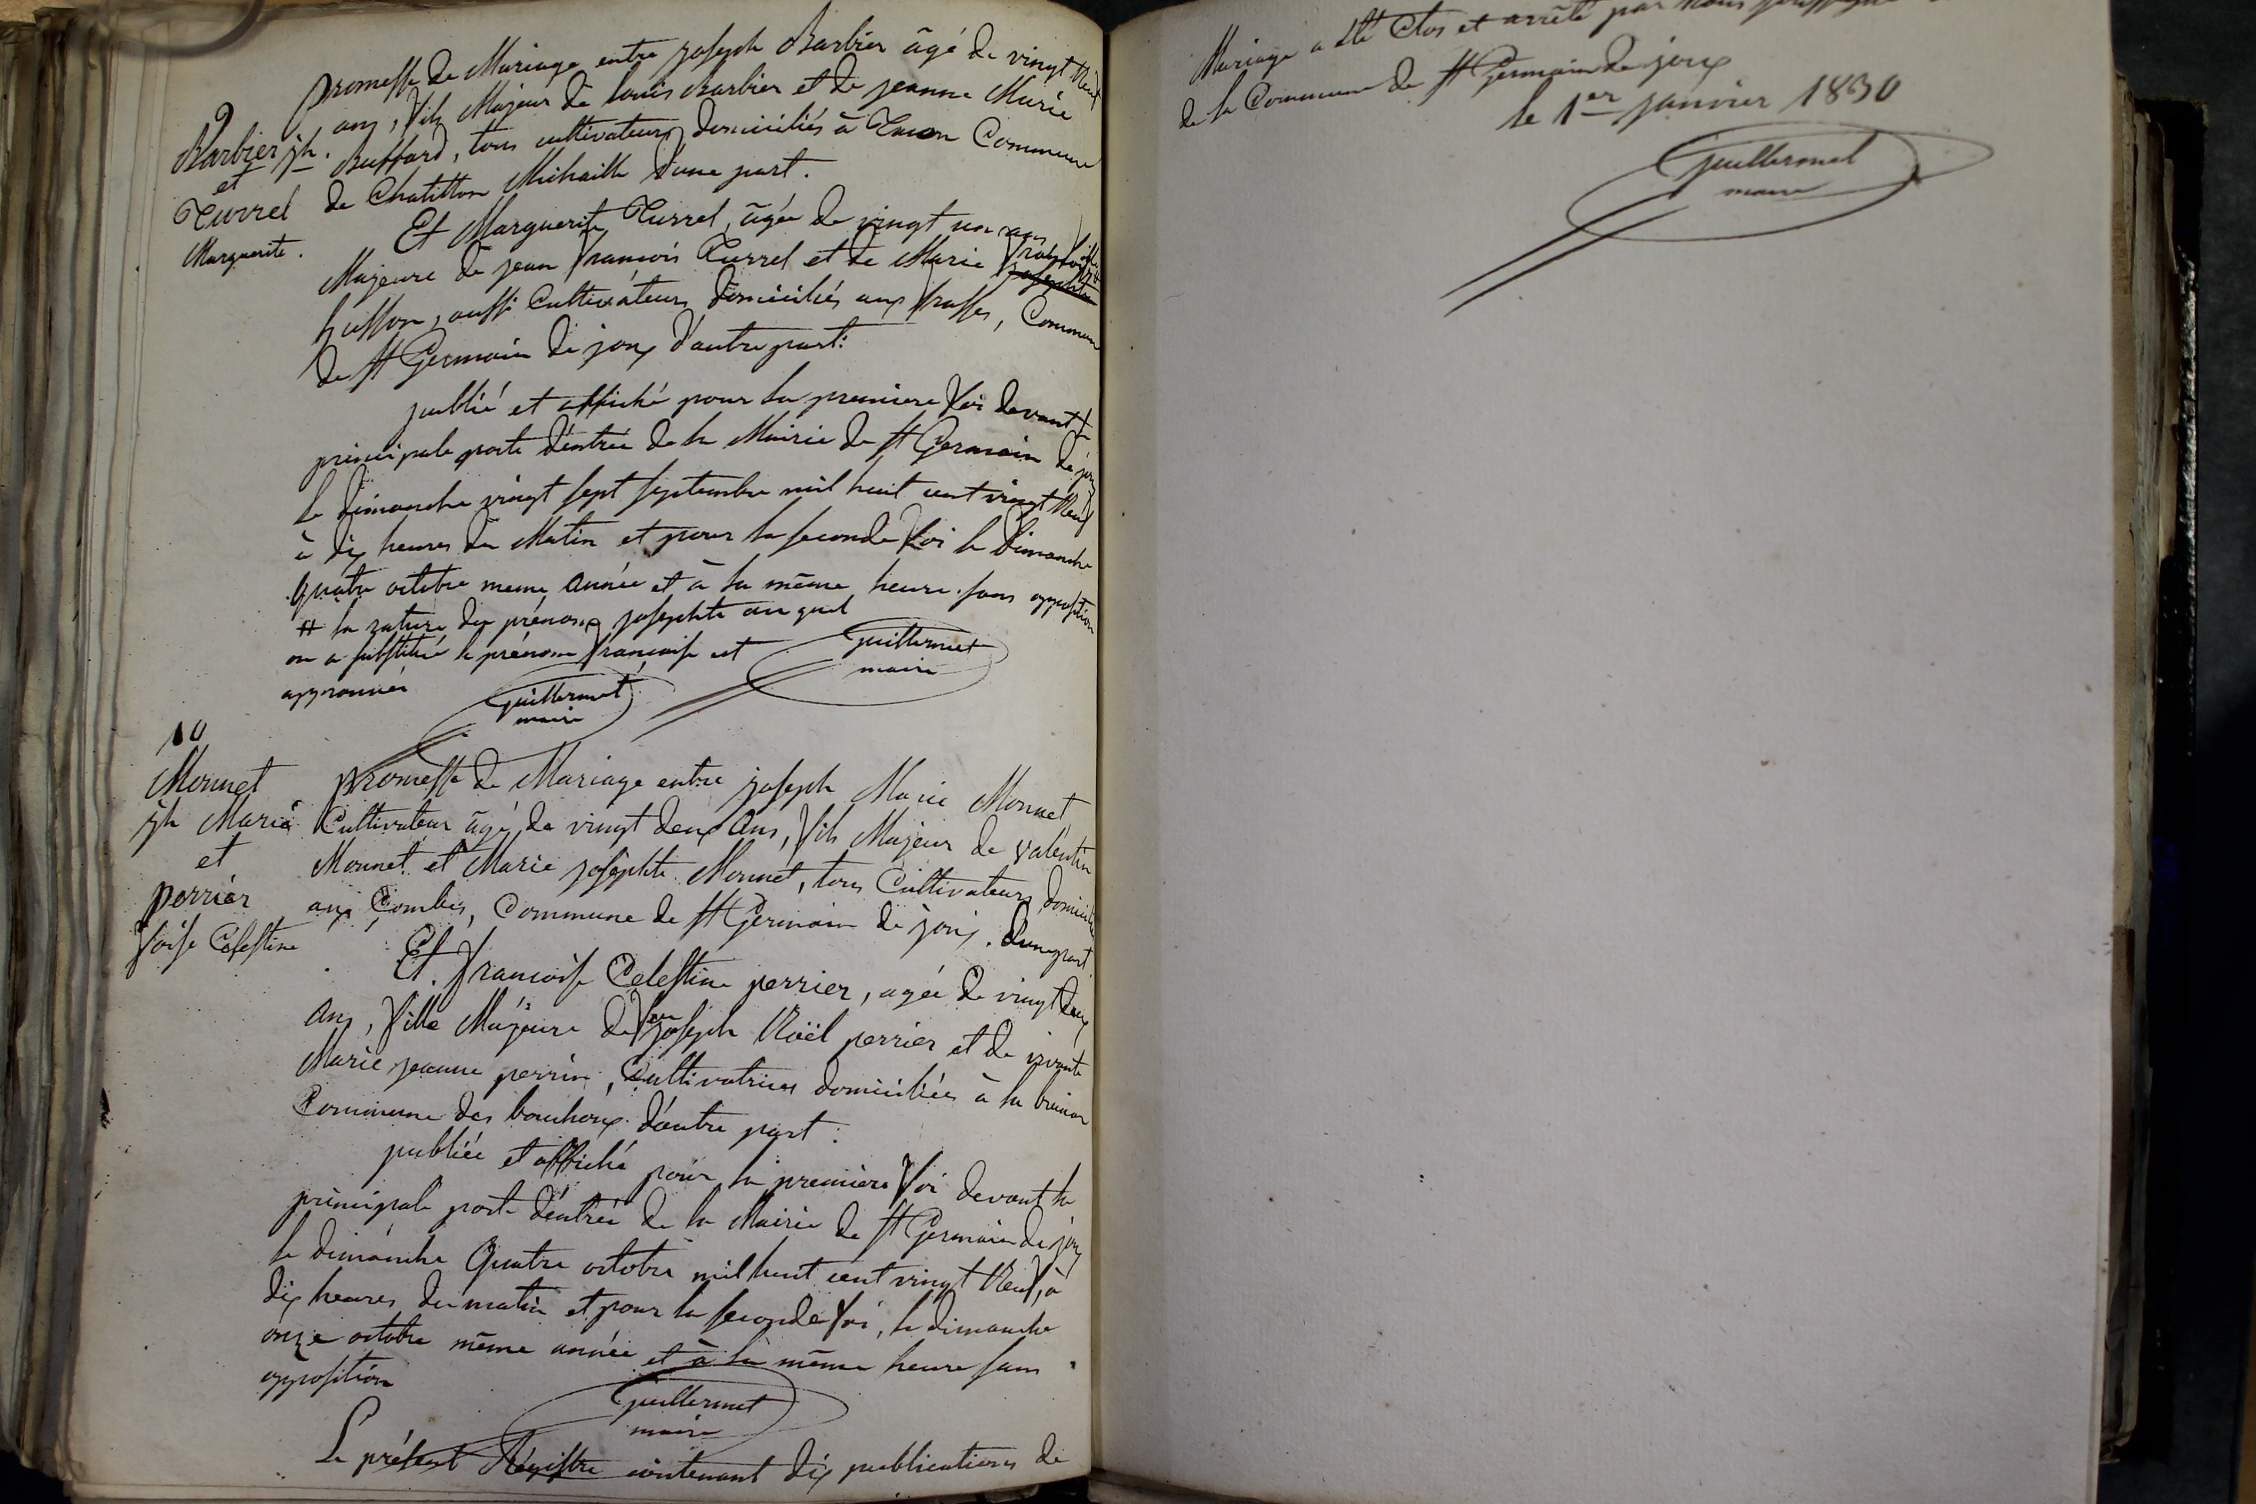 9
Barbier jh.
et
Turrel
Marguerite.
promesse de Mariage entre joseph Barbier âgé de vingt Neuf
ans, fils Majeur de louis Barbier et de jeanne Marie
Buffard, tous cultivateurs domiciliés à Commune
de Chatillon Michaille d'une part.
Et Marguerite Turrel, âgée de vingt un ans fille
Majeure de jean françois Turrel et de Marie josephte françoise #
husson, aussi Cultivateurs domiciliés aux frasses, Commune
de St Germain de joux d'autre part:
publié et affiché pour la premiere foi devant la
principale porte d'entrée de la Mairie de St Germain de joux
le dimanche vingt sept septembre mil huit cent vingt Neuf
à dix heures du Matin et pour la seconde foi le Dimanche
quatre octobre meme année et à la même heure. sans opposition
# la rature du prénom josephte au quel
on a substitué le prénom francoise est
approuvée
Guillermet
maire
Guillermet
maire
10
Monnet
jh Marie
et
perrier
foise Celestine
promesse de Mariage entre joseph Marie Monnet
Cultivateur âgé de vingt deux Ans, fils Majeur de valentin
Monnet et Marie josephte Monnet, tous Cultivateurs domiciliés
aux Combes, Commune de St Germain de joux. d'une part.
Et francoise Celestine perrier, agée de vingt deux
Ans, fille Majeure de feu joseph Noël perrier et de vivante
Marie jeanne perrin, Cultivatrices domiciliées à la
Commune des bouchoux d'autre part:
publiée et affiché pour la première foi devant la
principale porte d'éntrée de la Mairie de St Germain de joux
le dimanche Quatre octobre mil huit cent vingt Neuf, à
dix heures du matin et pour la seconde foi, le dimanche
onze octobre même année et à la même heure sans
opposition
Guillermet
maire
Le présent Régistre contenant dix publications de
Mariage a été Clos et arrêté par Nous
de la Commune de St Germain de joux
le 1er janvier 1830
Guillermet
maire